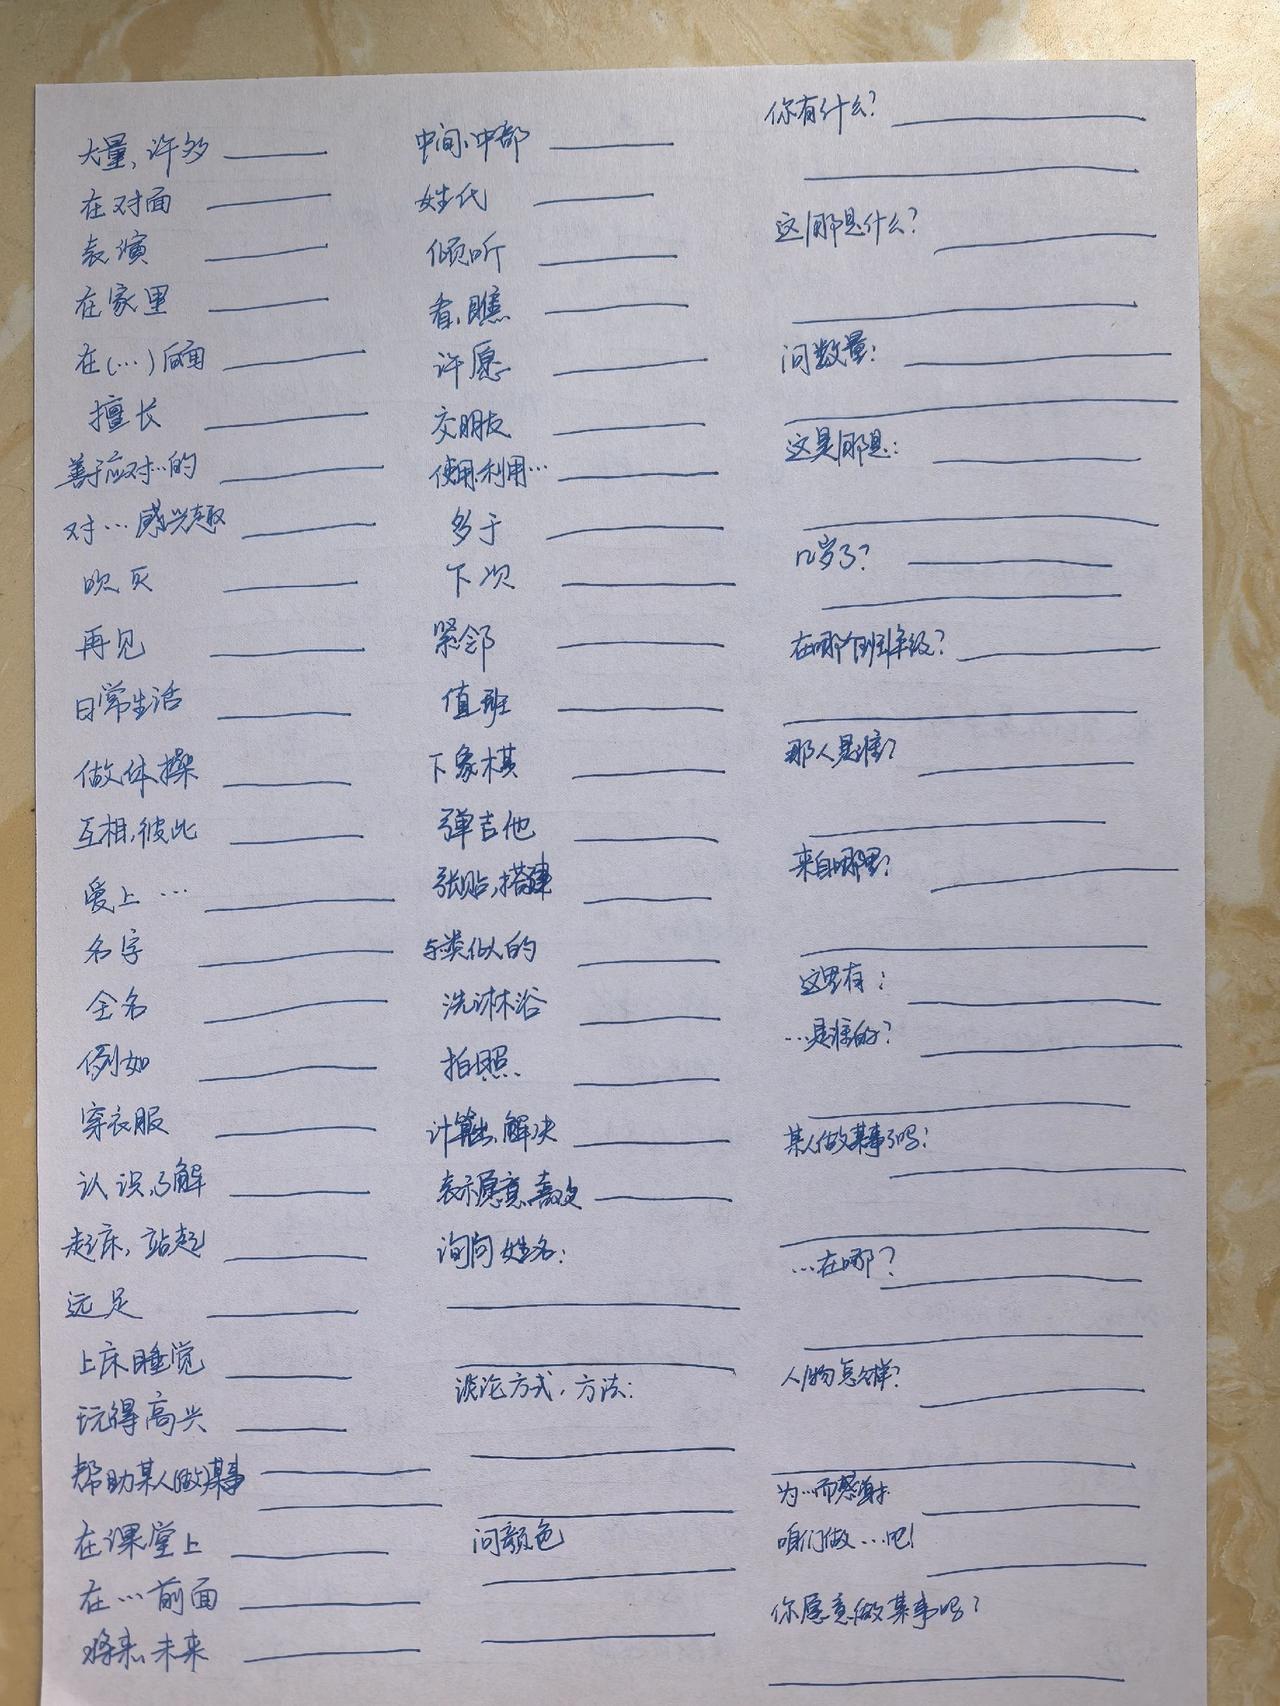 大量，许多
在对面
表演
在家里
在(…)后面
擅长
善于应对…的
对…感兴趣
吹灭
再见
日常生活
做体操
互相，彼此
爱上…
名字
全名
例如
穿衣服
认识，了解
起床，站起
远足
上床睡觉
玩得高兴
帮助某人(做)某事
在课堂上
在…前面
将来、未来
中间、中部
姓氏
倾听
看、瞧
许愿
交朋友
使用、利用…
多于
下次
紧邻
值班
下象棋
弹吉他
张贴，搭建
与类似的
洗淋浴
拍照
计算出、解决
表示愿意、喜欢
询问姓名：
谈论方式、方法：
问颜色
你有什么？
这/那是什么？
问数量：
这是/那是：
几岁了？
在哪个班/年级？
那人是谁？
来自哪里？
这里有：
…是谁的？
某人做某事了吗？
…在哪？
人/物怎么样？
为…而感谢
咱们做…吧！
你愿意做某事吗？